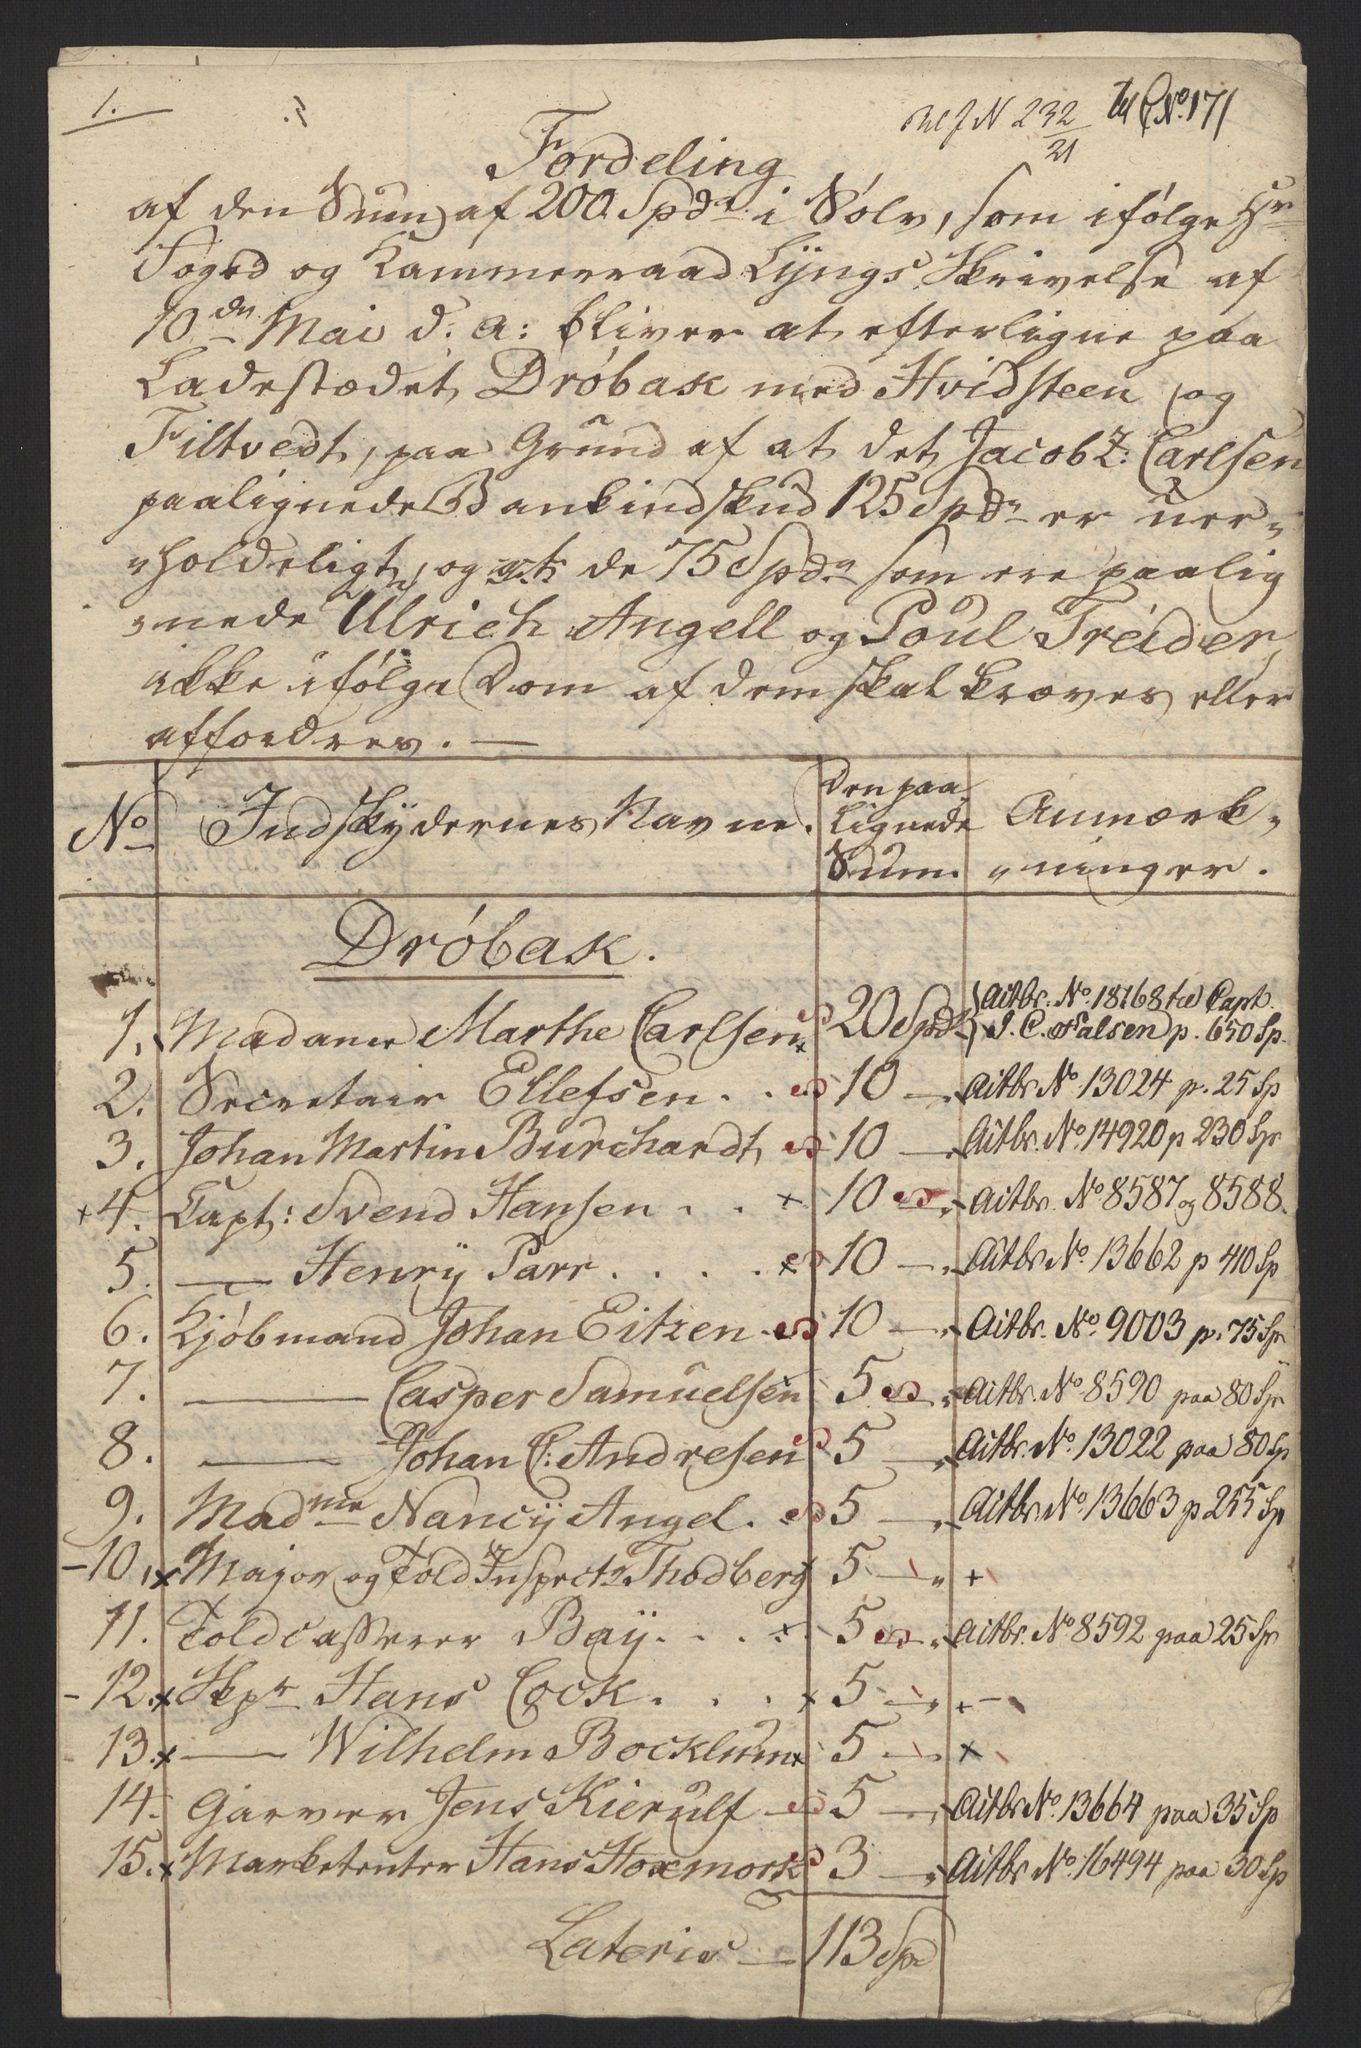 1.
Ref N 232/21 til C No. 171
Fordeling
af den Sum af 200 Spdr i Sølv, som ifølge Hr
Foged og Kammerraad Lyngs Skrivelse af
10de Mai d: a: bliver at efterligne paa
Ladestædet Drøbak med Hvidsteen og
Filtvedt, paa Grund af at det Jacob Z: Carlsen
paalignede Bankindskud 125 Spdr er uer-
"holdeligt, og at de 75 Spdr som ere paalig
"nede Ulrich Angell og Poul Treider,
ikke ifølge Dom af dem skal kræves eller
affordres. —
No Indskydernes Navne. Den paa lignede Sum. Anmærk-
"ninger.
Drøbak.
1. Madame Marthe Carlsen 20 Spdr Qitbr. No. 18768 til Capt.
J. C. Falsen p. 650 Sp.
2. Secretair Ellefsen. . 10 — Qitbr No. 13024 p. 25 Sp
3. Johan Martin Burchardt 10 — Qitbr. No. 14920 p 230 Sp
+4. Capt: Svend Hansen . . × 10 Qitbr. No 8587 og 8588.
5. — Henrÿ Parr . . . . × 10 — Qitbr No. 13662 p 410 Sp
6. Kjøbmand Johan Eitzen 10 — Qitbr. No. 9003 p. 75 Sp
7. — Casper Samuelsen 5 Qitbr. No 8590 paa 80 Sp
8. — Johan C: Andresen 5 — Qitbr. No. 13022 paa 80 Sp
9. Madme Nancÿ Angel. 5 — Qitbr No. 13663 p 255 Sp
-10. × Major og Told Inspectr Thodberg 5 — " +
11. Toldcasserer Baÿ. . . . × 5 Qitbr. No 8592 paa 25 Sp
-12. × Skpr Hans Cock. . . × 5 — " + -
13. × — Wilhelm Bocklum × 5 — ×
14. Garver Jens Kierulf 5 — Qitbr No. 13664 paa 35 Sp
15. × Marketenter Hans Hoxmork 3 — Qitbr No. 16494 paa 30 Sp
Lateris — 113 Spd